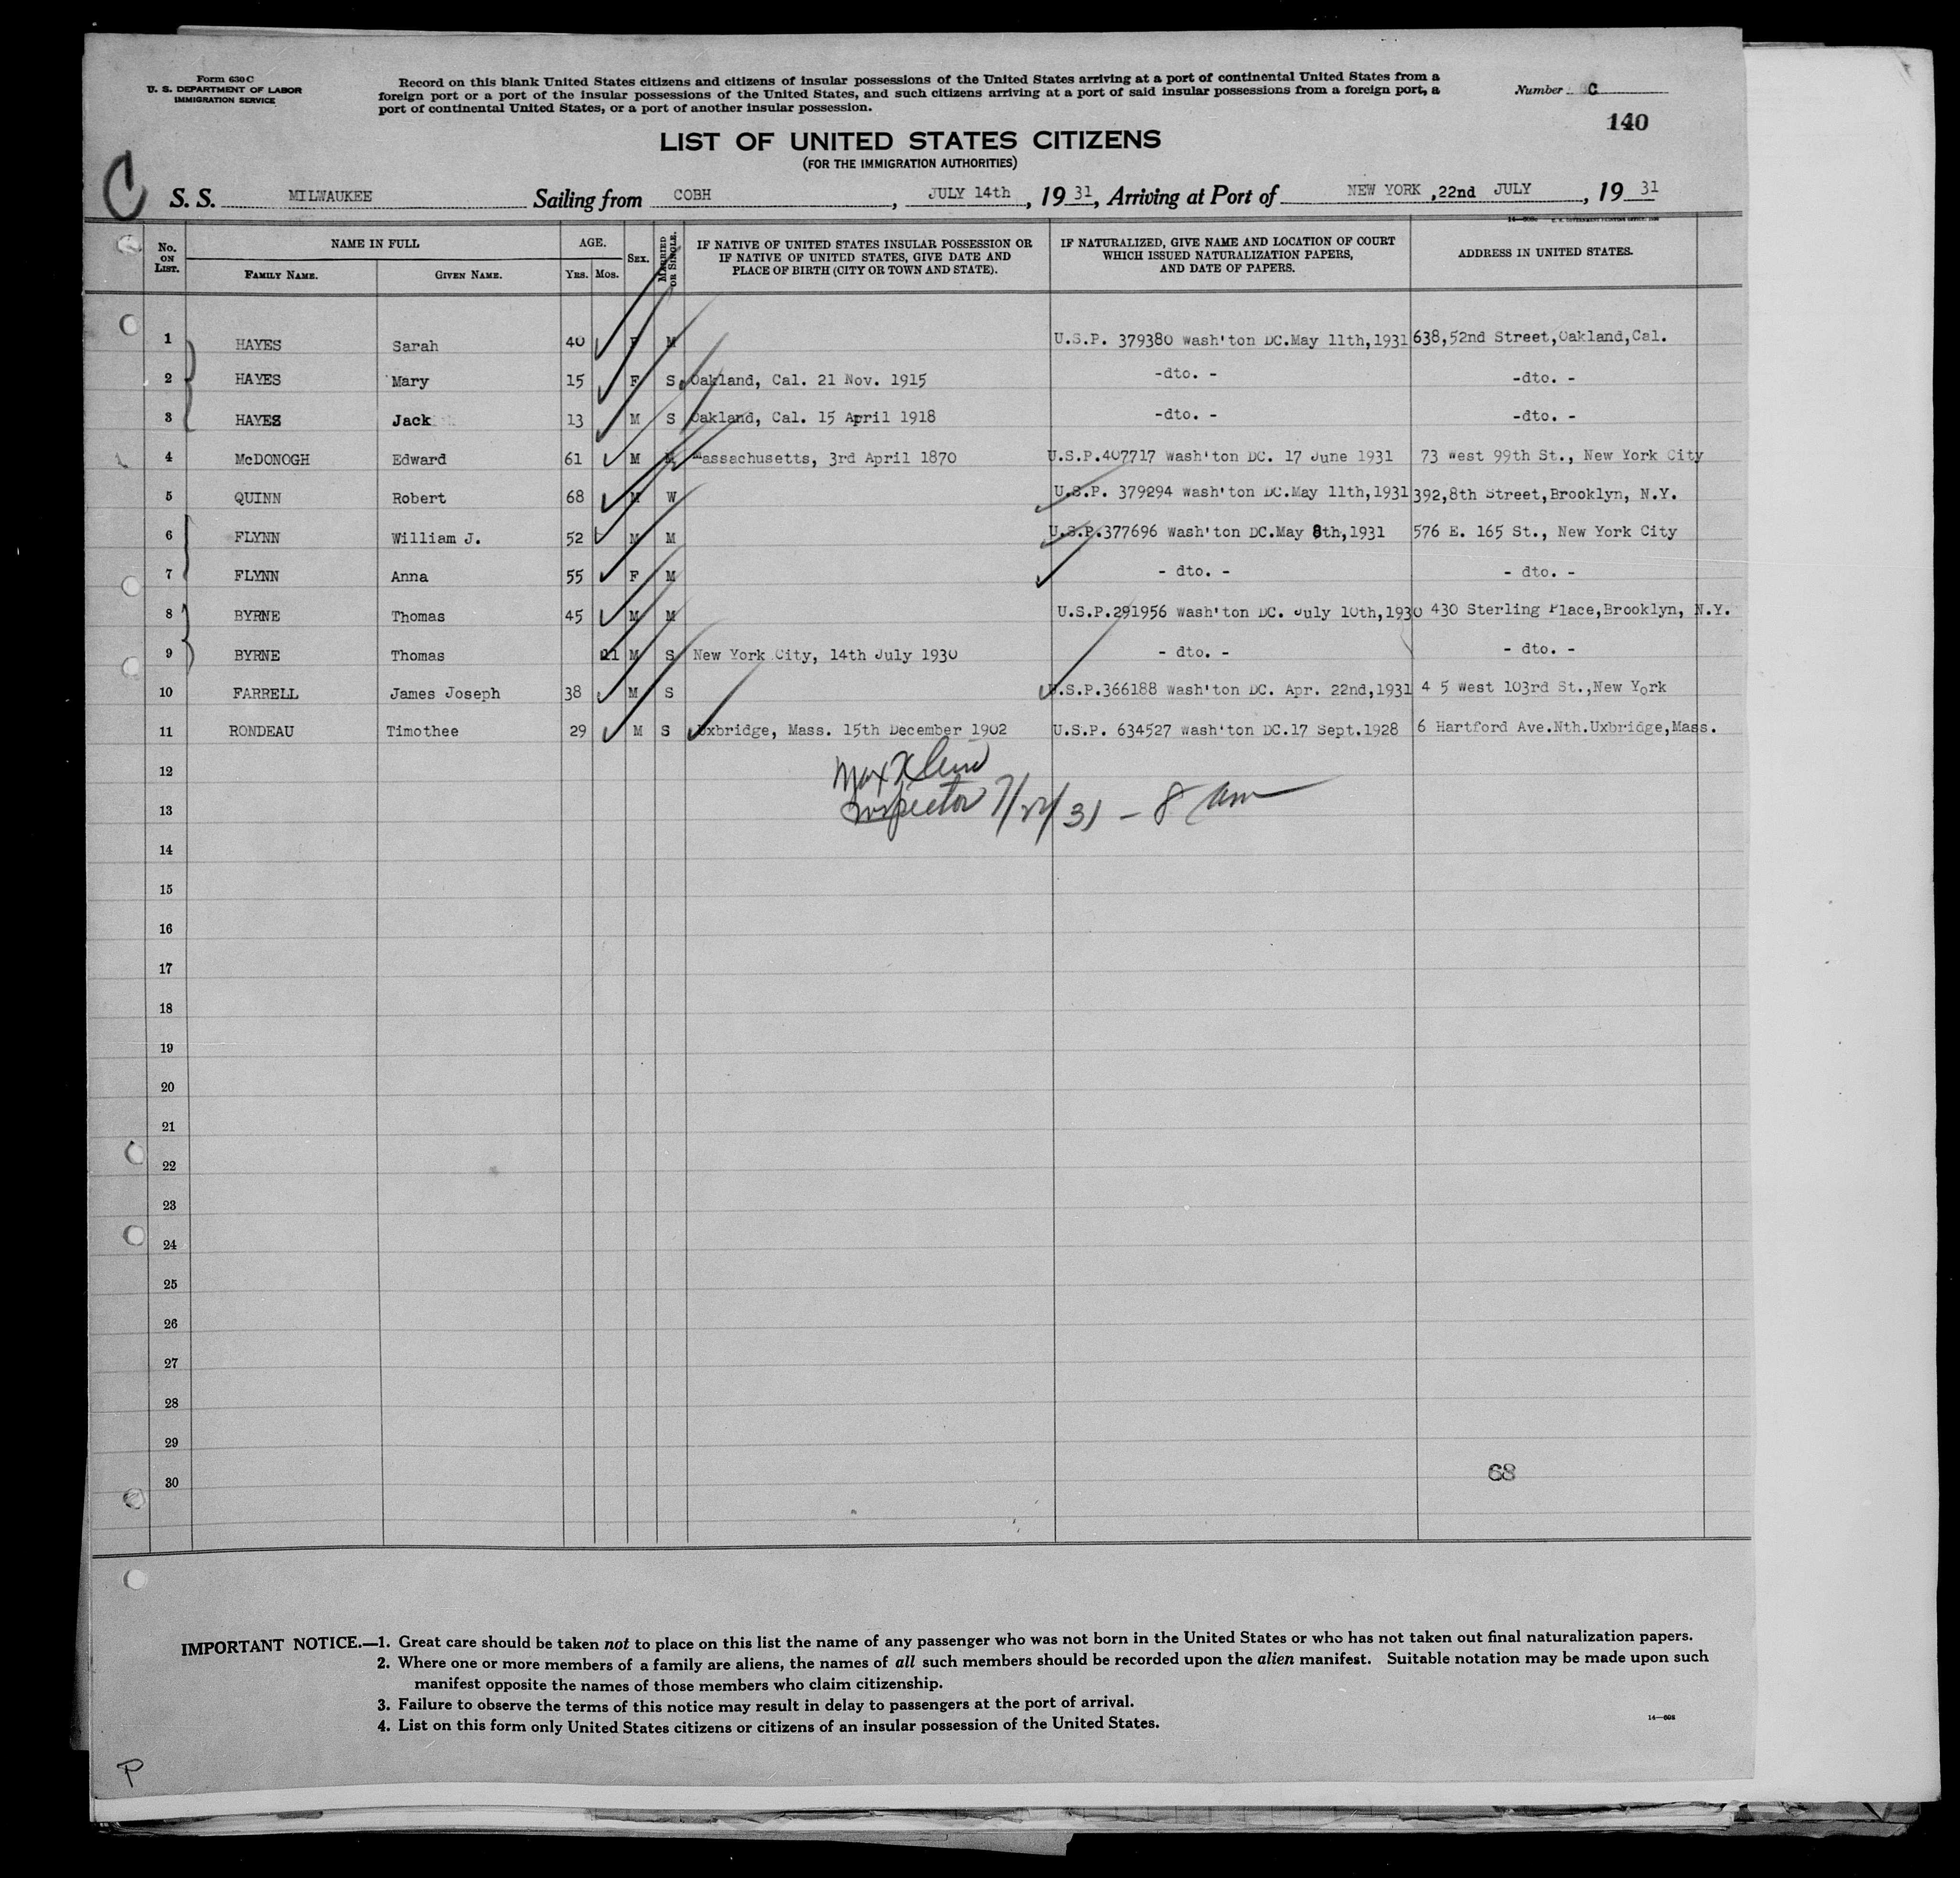 Form 630 C
U. S. DEPARTMENT OF LABOR
IMMIGRATION SERVICE
Record on this blank United States citizens and citizens of insular possessions of the United States arriving at a port of continental United States from a
foreign port or a port of the insular possessions of the United States, and such citizens arriving at a port of said insular possessions from a foreign port, a
port of continental United States, or a port of another insular possession.
Number C
140
LIST OF UNITED STATES CITIZENS
(FOR THE IMMIGRATION AUTHORITIES)
C
S. S. MILWAUKEE Sailing from COBH, JULY 14th, 19 31, Arriving at Port of NEW YORK, 22nd JULY, 19 31
No. ON LIST. NAME IN FULL FAMILY NAME. GIVEN NAME. AGE. YRS. MOS. SEX. MARRIED OR SINGLE. IF NATIVE OF UNITED STATES INSULAR POSSESSION OR IF NATIVE OF UNITED STATES, GIVE DATE AND PLACE OF BIRTH (CITY OR TOWN AND STATE). IF NATURALIZED, GIVE NAME AND LOCATION OF COURT WHICH ISSUED NATURALIZATION PAPERS, AND DATE OF PAPERS. ADDRESS IN UNITED STATES.
1 HAYES Sarah 40 F M U.S.P. 379380 Wash'ton DC.May 11th,1931 638,52nd Street,Oakland,Cal.
2 HAYES Mary 15 F S Oakland, Cal. 21 Nov. 1915 -dto. - -dto. -
3 HAYES Jack 13 M S Oakland, Cal. 15 April 1918 -dto. - -dto. -
4 McDONOGH Edward 61 M M Massachusetts, 3rd April 1870 U.S.P.407717 Wash'ton DC. 17 June 1931 73 West 99th St., New York City
5 QUINN Robert 68 M W U.S.P. 379294 Wash'ton DC.May 11th,1931 392,8th Street,Brooklyn, N.Y.
6 FLYNN William J. 52 M M U.S.P.377696 Wash'ton DC.May 8th,1931 576 E. 165 St., New York City
7 FLYNN Anna 55 F M - dto. - - dto. -
8 BYRNE Thomas 45 M M U.S.P.291956 Wash'ton DC. July 10th,1930 430 Sterling Place,Brooklyn, N.Y.
9 BYRNE Thomas 11 M S New York City, 14th July 1930 - dto. - - dto. -
10 FARRELL James Joseph 38 M S U.S.P.366188 Wash'ton DC. Apr. 22nd,1931 4 5 West 103rd St.,New York
11 RONDEAU Timothee 29 M S Uxbridge, Mass. 15th December 1902 U.S.P. 634527 Wash'ton DC.17 Sept.1928 6 Hartford Ave.Nth.Uxbridge,Mass.
12 Max
13 Inspector 7/22/31 - 8 am
14
15
16
17
18
19
20
21
22
23
24
25
26
27
28
29
30
68
IMPORTANT NOTICE.—1. Great care should be taken not to place on this list the name of any passenger who was not born in the United States or who has not taken out final naturalization papers.
2. Where one or more members of a family are aliens, the names of all such members should be recorded upon the alien manifest. Suitable notation may be made upon such
manifest opposite the names of those members who claim citizenship.
3. Failure to observe the terms of this notice may result in delay to passengers at the port of arrival.
4. List on this form only United States citizens or citizens of an insular possession of the United States.
14—608
P